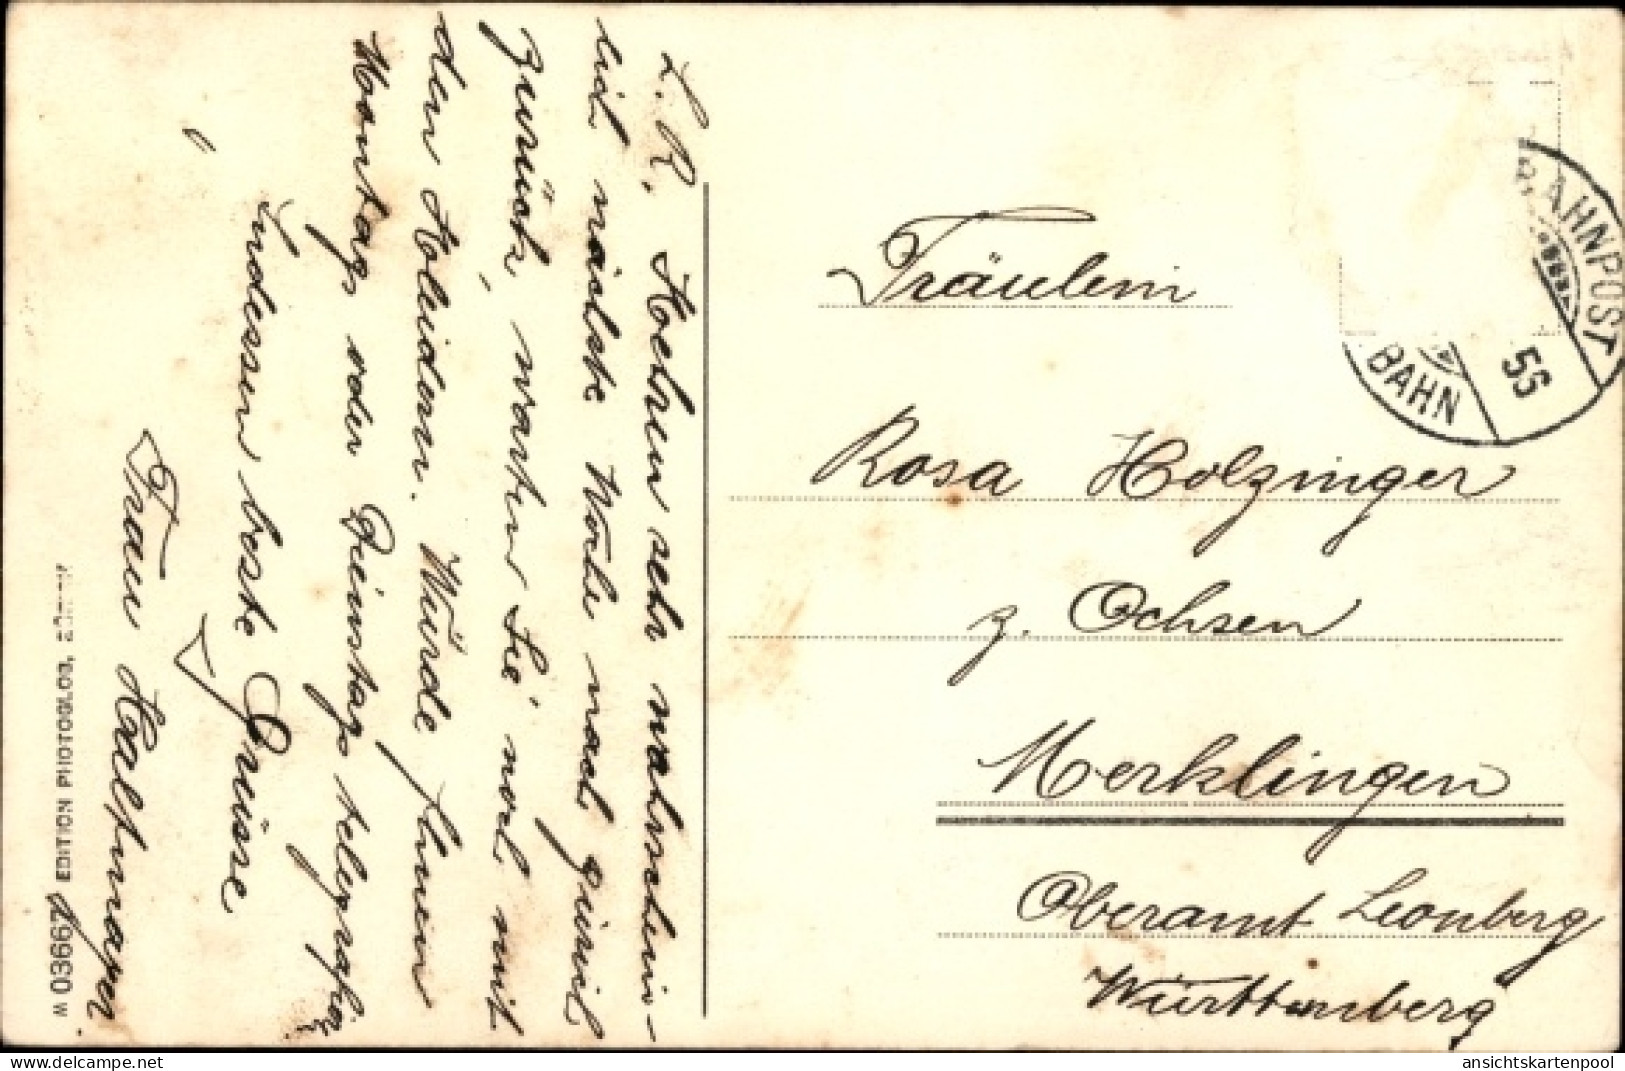 L. R. Kochen sehr wahrschein-
lich nächste Woche nach Zürich
zurück, warten Sie noch mit
den Kleidern. Würde Ihnen
Montag oder Dienstag telegrafier.
Indessen beste Grüsse
Frau Haltmayer.
M 03667 EDITION PHOTOGLOB, ZÜRICH
BAHNPOST
56
BAHN
Fräulein
Rosa Holzinger
z. Ochsen
Merklingen
Oberamt Leonberg
Württemberg
ansichtskartenpool